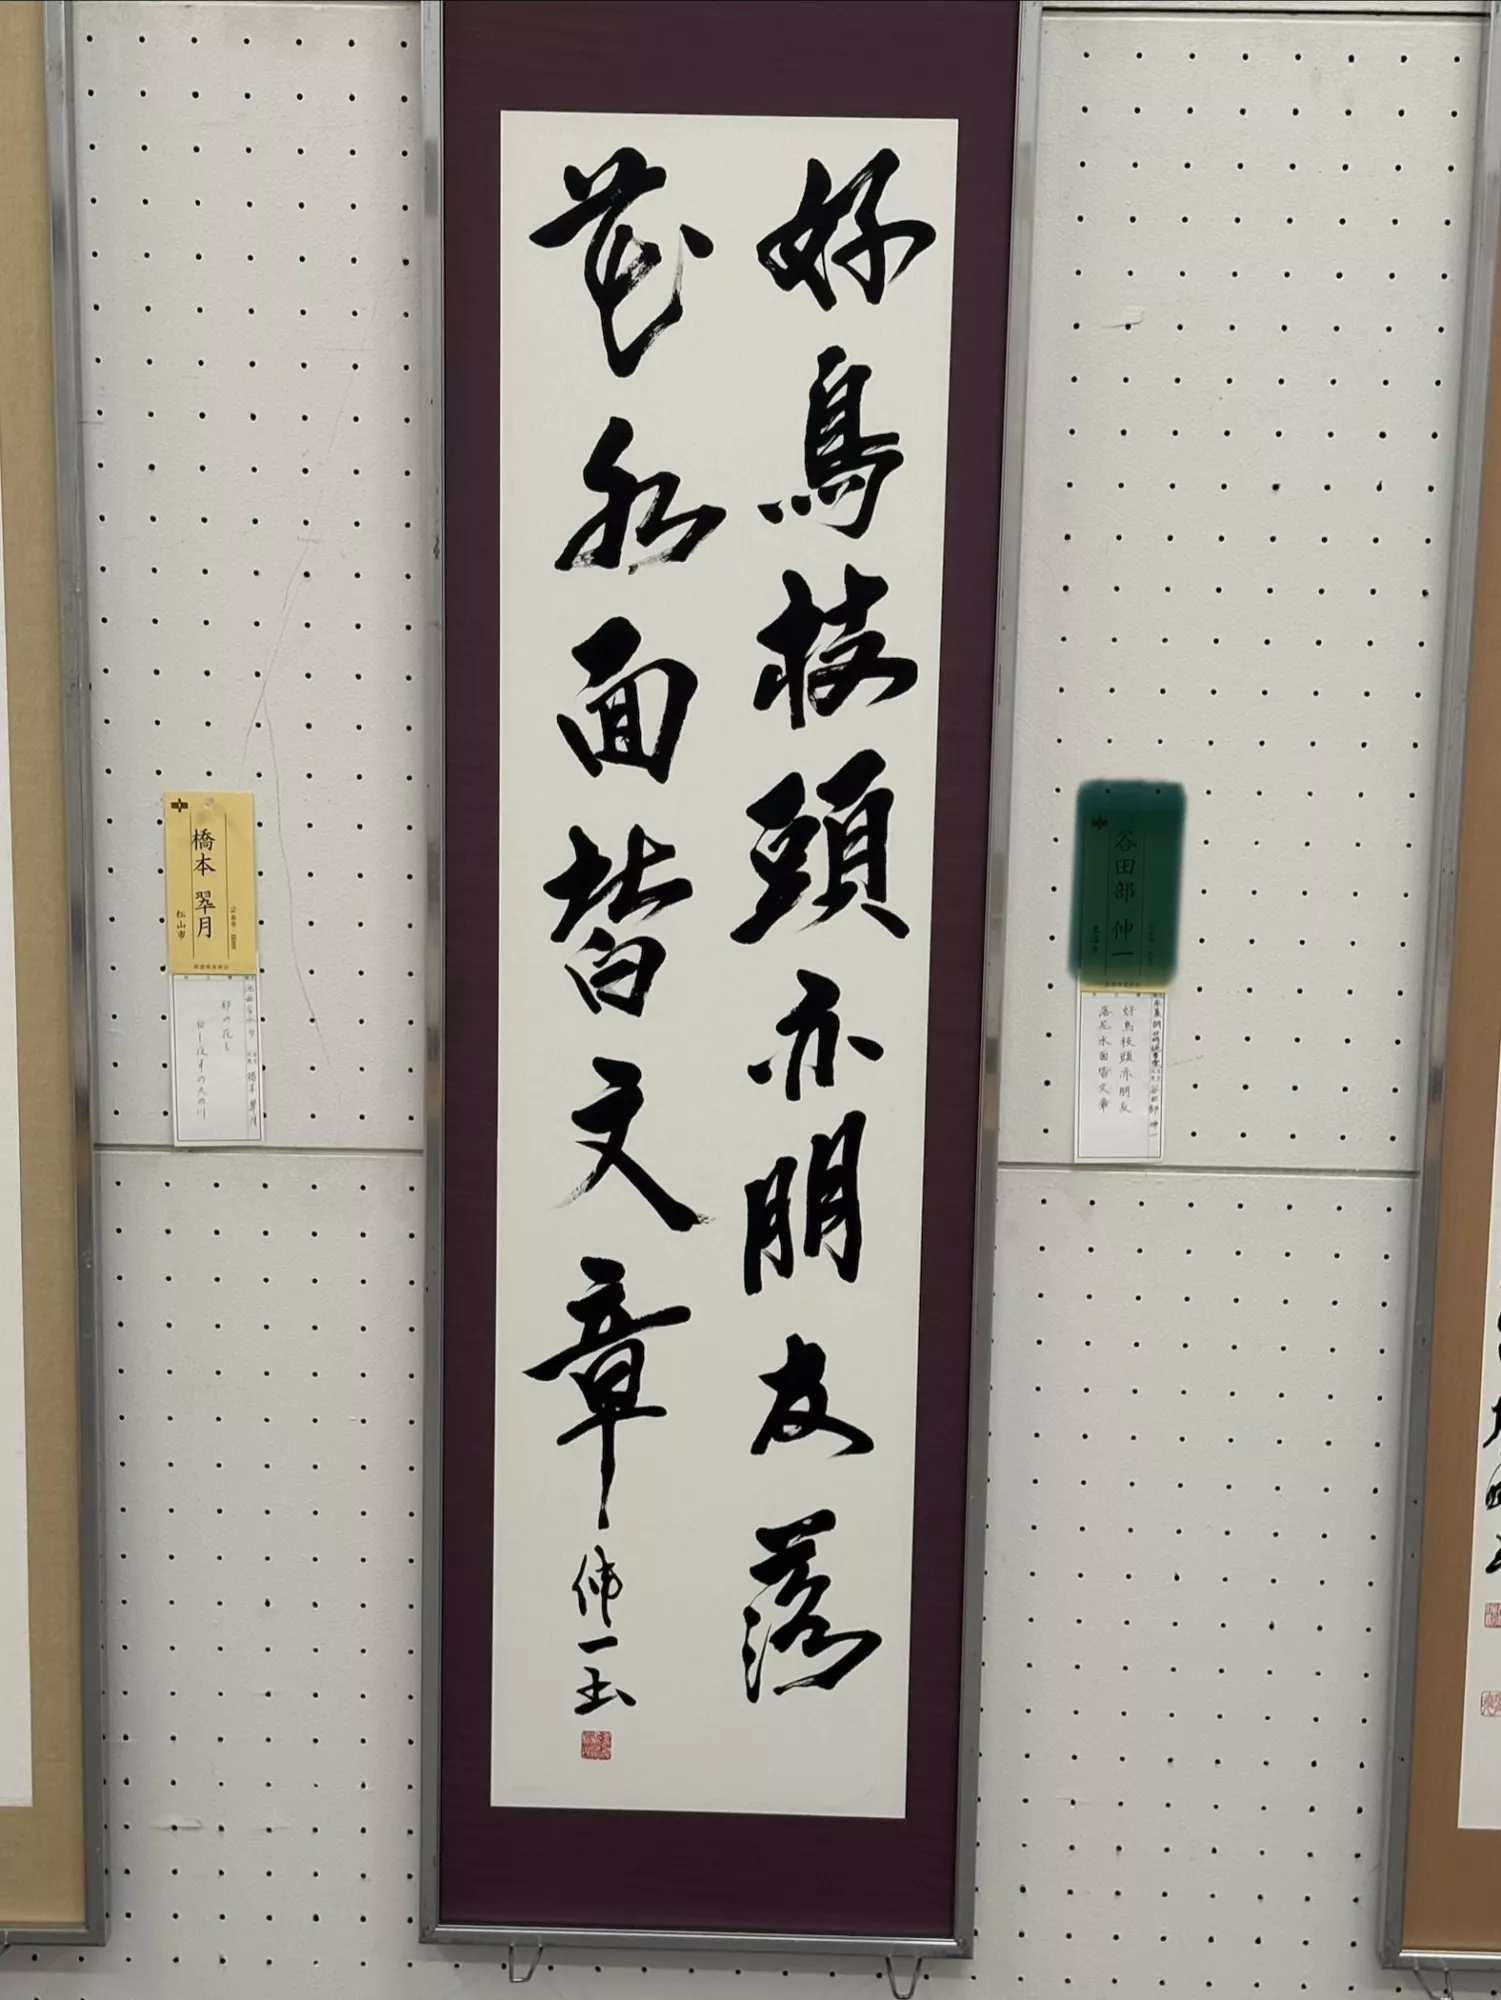 好鳥枝頭亦朋友落
花水面皆文章
伸一書
谷田部 伸一
好鳥枝頭亦朋友
落花水面皆文章
谷田部 伸一
橋本 翠月
松山市
卯の花も
橋本 翠月